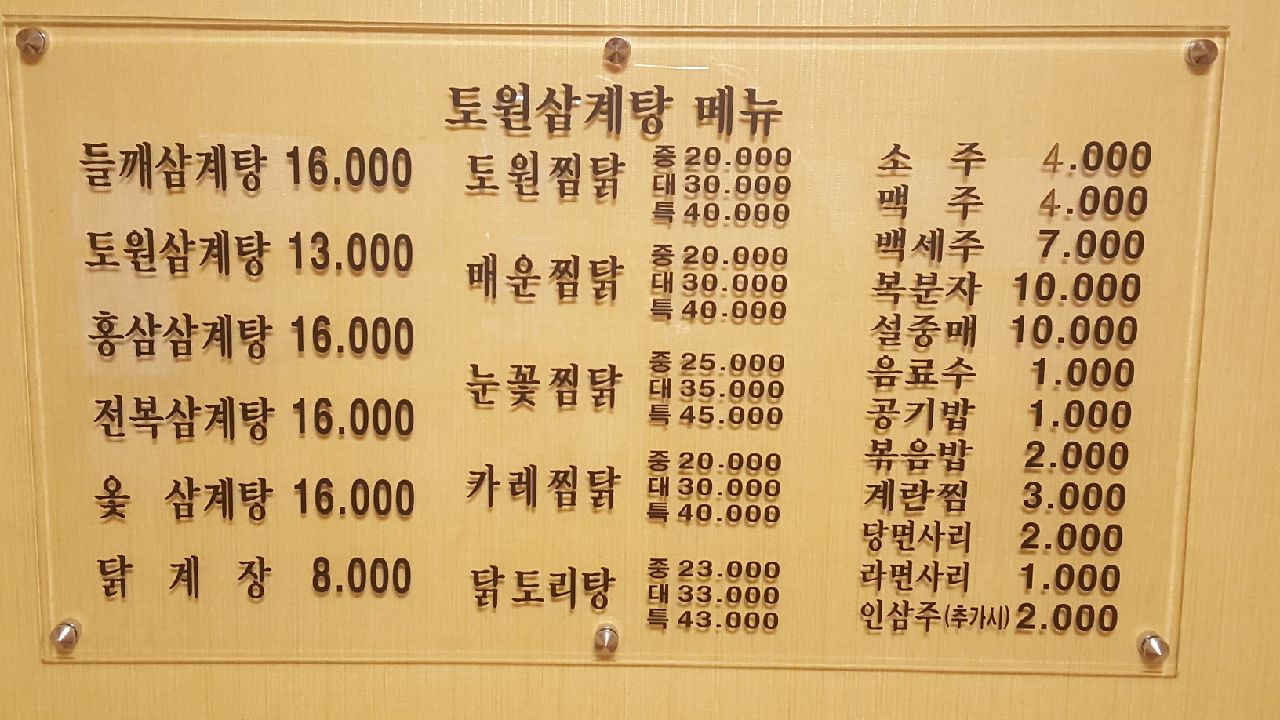 토원삼계탕 메뉴
들깨삼계탕 16.000
토원삼계탕 13.000
홍삼삼계탕 16.000
전복삼계탕 16.000
옻 삼계탕 16.000
닭 계 장 8.000
토원찜닭 중 20.000
대 30.000
특 40.000
매운찜닭 중 20.000
대 30.000
특 40.000
눈꽃찜닭 중 25.000
대 35.000
특 45.000
카레찜닭 중 20.000
대 30.000
특 40.000
닭토리탕 중 23.000
대 33.000
특 43.000
소 주 4.000
맥 주 4.000
백세주 7.000
복분자 10.000
설중매 10.000
음료수 1.000
공기밥 1.000
볶음밥 2.000
계란찜 3.000
당면사리 2.000
라면사리 1.000
인삼주(추가시) 2.000